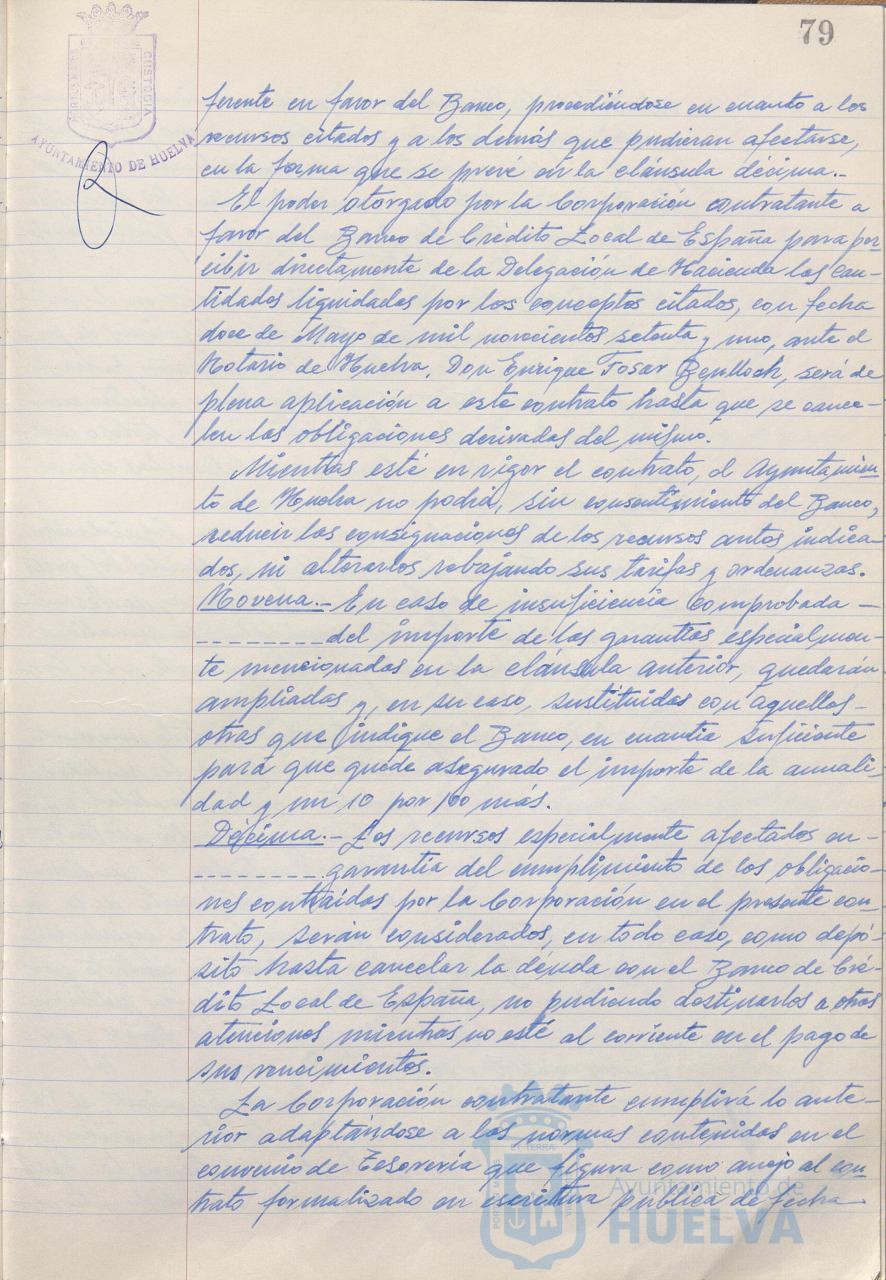 79
PORTUS MARIS
CUSTODIA
AYUNTAMIENTO DE HUELVA
ferente en favor del Banco, procediéndose en cuanto a los
recursos citados y a los demás que pudieran afectarse,
en la forma que se prevé en la cláusula décima.-
El poder otorgado por la Corporación contratante a
favor del Banco de Crédito Local de España para per-
cibir directamente de la Delegación de Hacienda las can-
tidades liquidadas por los conceptos citados, con fecha
doce de Mayo de mil novecientos setenta y uno, ante el
Notario de Huelva, Don Enrique Tosar Benlloch, será de
plena aplicación a este contrato hasta que se cance-
len las obligaciones derivadas del mismo.
Mientras esté en vigor el contrato, el Ayuntamien-
to de Huelva no podrá, sin consentimiento del Banco,
reducir las consignaciones de los recursos antes indica-
dos, ni alterarlos rebajando sus tarifas y ordenanzas.
Novena.- En caso de insuficiencia comprobada -
--------- del importe de las garantías especialmen-
te mencionadas en la cláusula anterior, quedarán
ampliadas y, en su caso, sustituidas con aquellas -
otras que indique el Banco, en cuantía suficiente
para que quede asegurado el importe de la anuali-
dad y un 10 por 100 más.
Décima.- Los recursos especialmente afectados en-
--------- garantía del cumplimiento de las obligacio-
nes contraídas por la Corporación en el presente con-
trato, serán considerados, en todo caso, como depó-
sito hasta cancelar la deuda con el Banco de Cré-
dito Local de España, no pudiendo destinarlos a otras
atenciones mientras no esté al corriente en el pago de
sus vencimientos.
La Corporación contratante cumplirá lo ante-
rior adaptándose a las normas contenidas en el
convenio de Tesorería que figura como anejo al con-
trato formalizado en escritura pública de fecha-
Ayuntamiento de
HUELVA